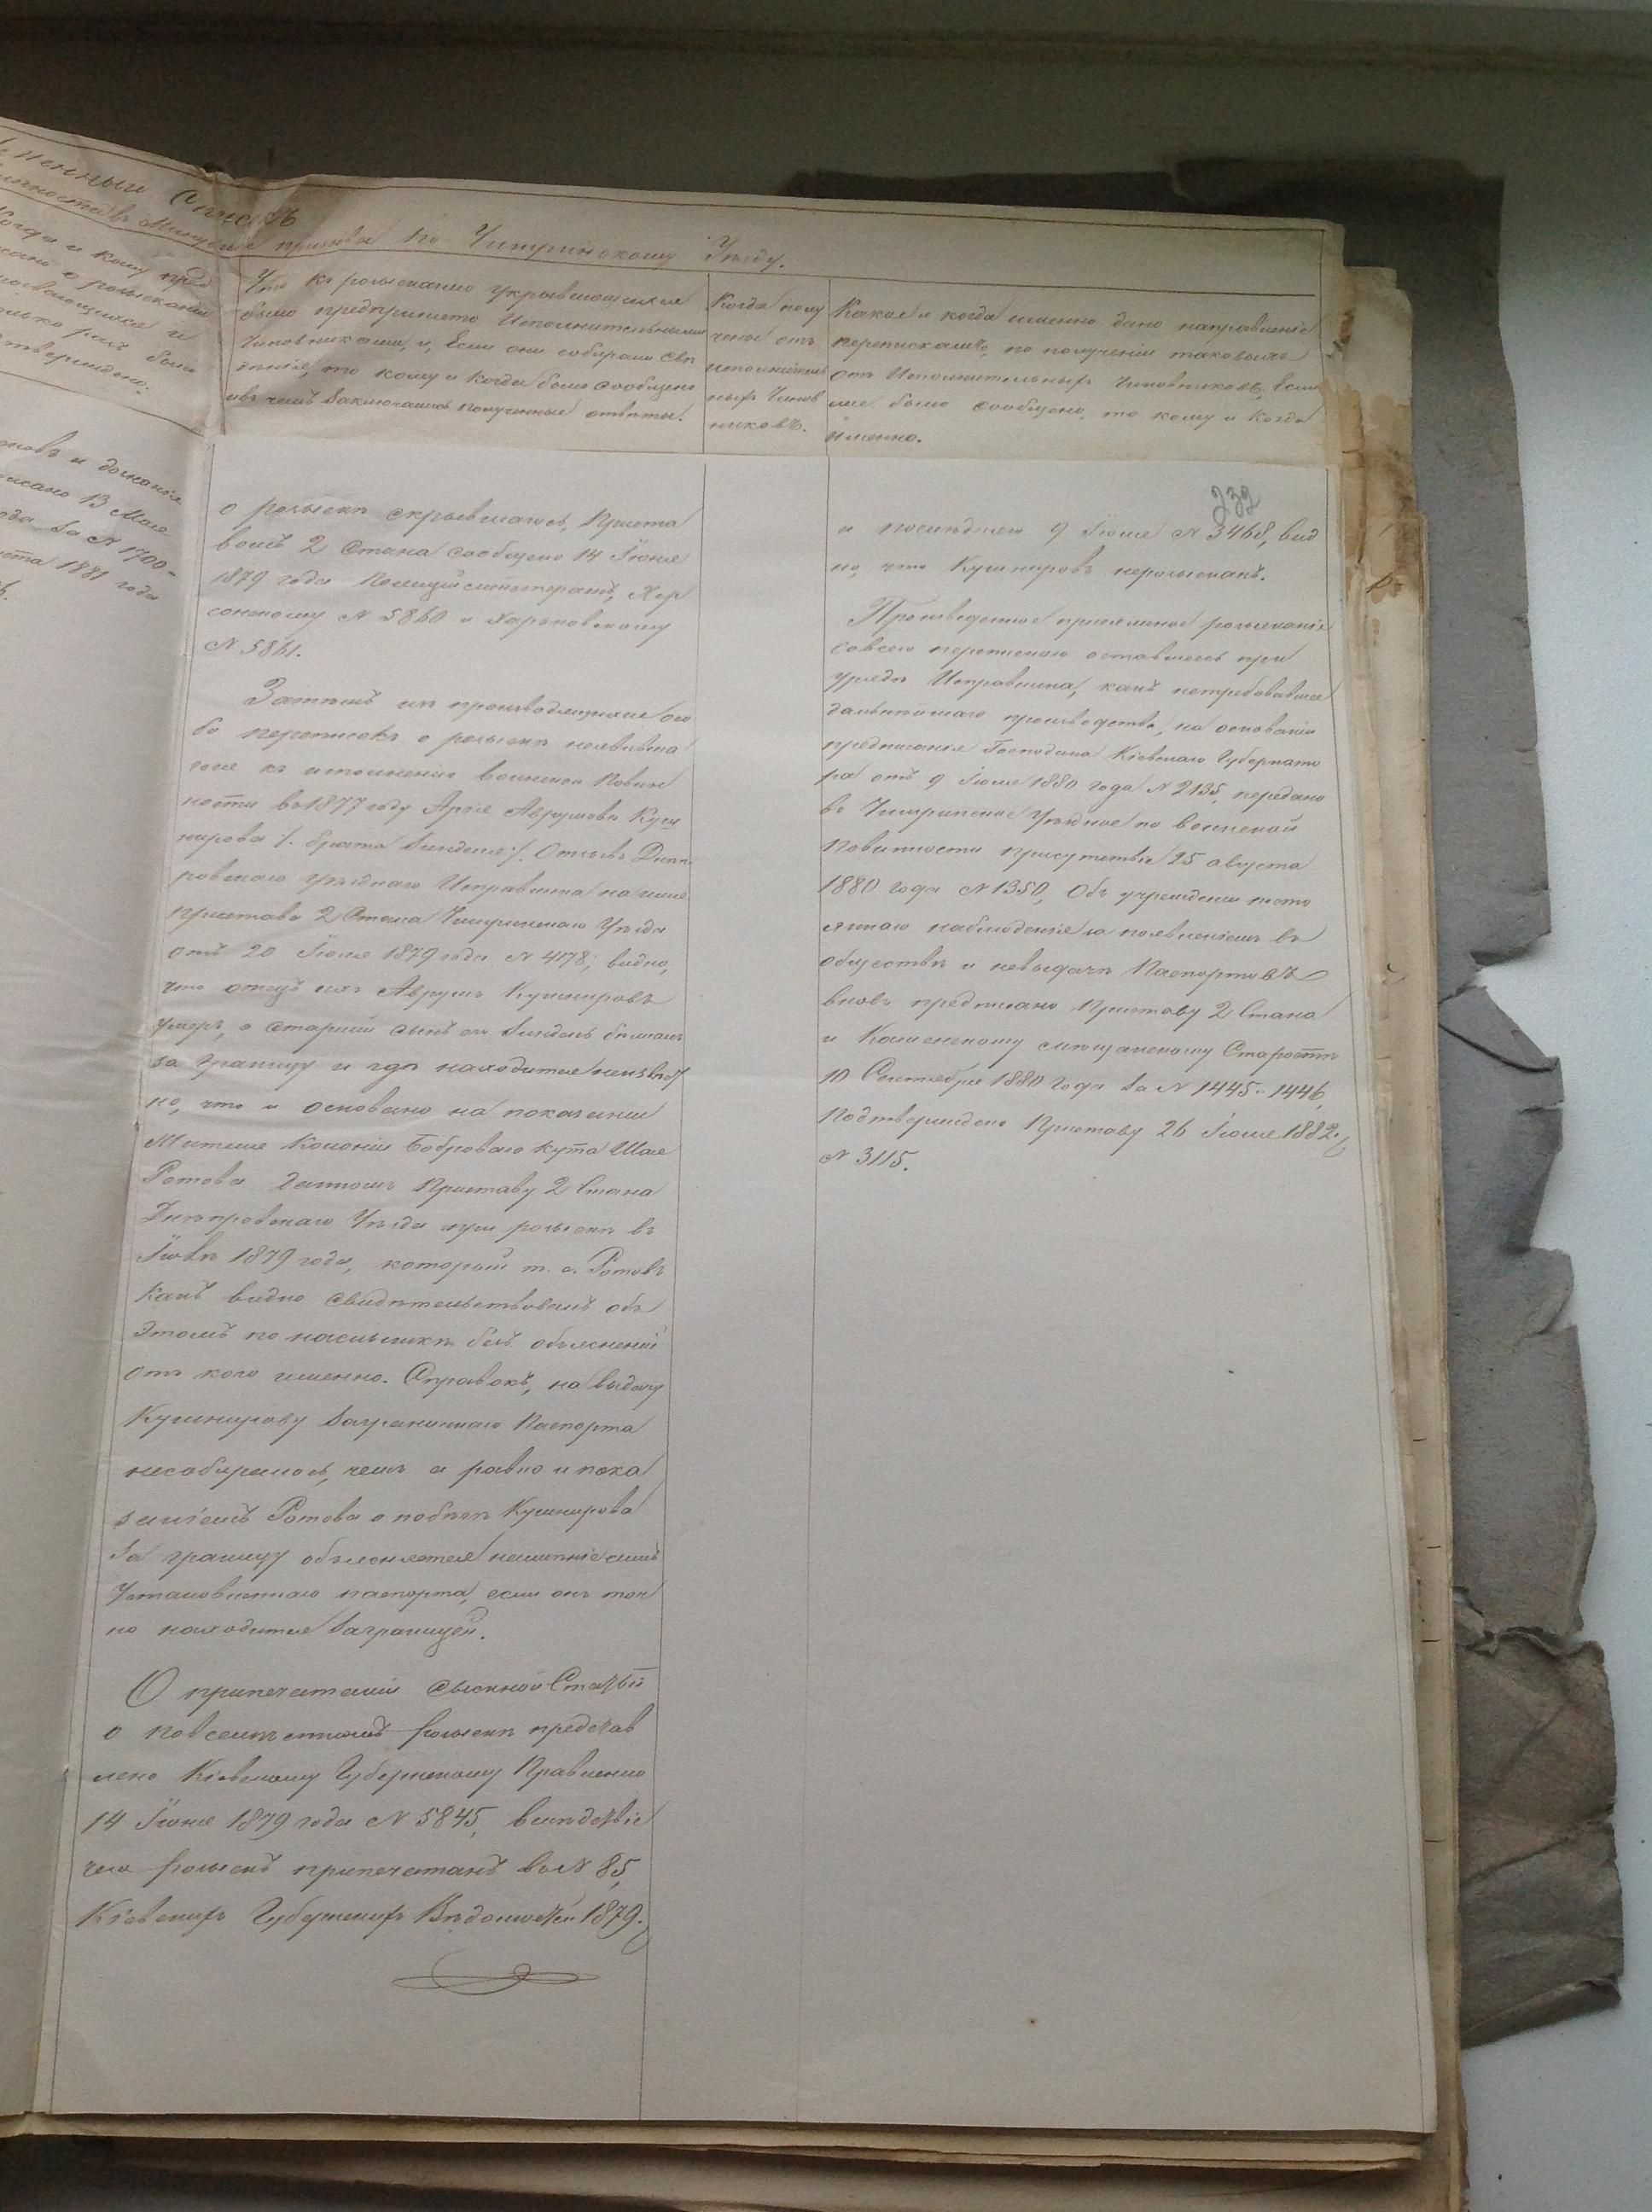 Именный Списокъ
призыва по Чигиринскому Уѣзду.
Когда и кому пред
писано о розысканіи
укрывающихся и
сколько разъ было
подтверждено.
Что къ розысканію укрывающихся
было предпринято Исполнительными
Чиновниками, и, Если они собирали свѣ
дѣнія, то кому и когда было сообщено
и въ чемъ заключались полученные отвѣты.
Когда полу
чено отъ
исполнитель
ныхъ Чинов
никовъ.
Какое и когда именно дано направленіе
перепискамъ, по полученіи таковыхъ
отъ Исполнительныхъ Чиновниковъ, Если
же было сообщено, то кому и когда
именно.
и дознанія
писано 13 Мая
года за № 1700-
1881 года
о розыскѣ скрывшагося, Приста
вомъ 2 Стана сообщено 14 Іюня
1879 года Полиціймейстерамъ, Хер
сонскому № 5860 и Харьковскому
№ 5861.
Затѣмъ изъ производящихся осо
бо переписокъ о розыскѣ неявивша
гося къ исполненію воинской Повин
ности въ 1877 году Арье Аврумова Куш
нирова /. брата Зинделя ./. Отзывъ Днѣп
ровскаго Уѣзднаго Исправника на имя
Пристава 2 Стана Чигиринскаго Уѣзда
отъ 20 Іюля 1879 года № 4178, видно,
что отецъ ихъ Аврумъ Кушнировъ
умеръ, а старшій сынъ его Зиндель бѣжалъ
за границу и гдѣ находится неизвѣст
но, что и основано на показаніи
Жителя Колоніи Боброваго Кута Шая
Ротова даннымъ Приставу 2 Стана
Днѣпровскаго Уѣзда при розыскѣ въ
Іюлѣ 1879 года, который т. е. Ротовъ
какъ видно свидѣтельствовалъ объ
этомъ по наслышкѣ безъ объясненій
отъ кого именно. Справокъ, на выдачу
Кушнирову Заграничнаго Паспорта
несобиралось, чемъ а равно и пока
заніемъ Ротова о побѣгѣ Кушнирова
за границу объясняется неимѣніе имъ
Установленнаго паспорта, если онъ точ
но находится Заграницей.
О припечатаніи сыскной Статьи
о повсемѣстномъ розыскѣ представ
лено Кіевскому Губернскому Правленію
14 Іюня 1879 года № 5845, вслѣдствіе
чего розыскъ припечатанъ въ № 85,
Кіевскихъ Губернскихъ Вѣдомостей 1879.
232
и послѣдняго 9 Іюля № 3468, вид
но, что Кушнировъ неросысканъ.
Произведенное розысканіе
совсею перепискою оставшеесь при
Исправника, какъ нетребовавшее
дальнѣйшаго производства, на основаніи
предписанія Господина Кіевскаго Губернато
ра отъ 9 Іюля 1880 года № 2135, передано
въ Чигиринское Уѣздное по воинской
Повинности присутствіе 25 августа
1880 года № 1350, Объ учрежденіи посто
яннаго наблюденія за появленіемъ въ
обществѣ и невыдачѣ Паспортовъ
вновь предписано Приставу 2 Стана
и Каменскому мѣщанскому Старостѣ
10 Сентября 1880 года за № 1445-1446,
Подтверждено Приставу 26 Іюля 1882 г.
№ 3115.